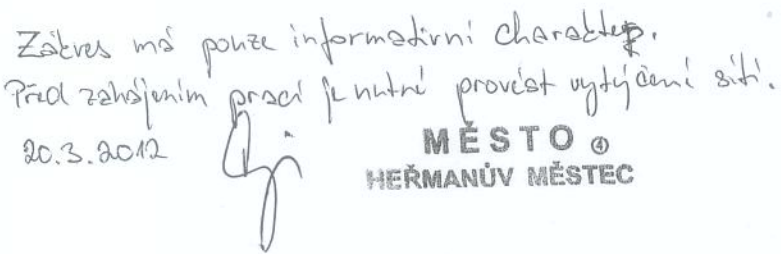 Zákres má pouze informativní charakter.
Před zahájením prací je nutné provést vytýčení sítí.
20.3.2012
MĚSTO 4
HEŘMANŮV MĚSTEC